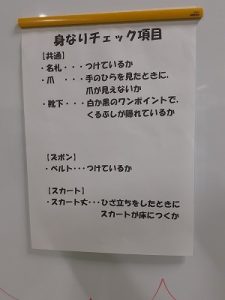 身なりチェック項目
【共通】
・名札・・・つけているか
・爪　・・・手のひらを見たときに、
爪が見えないか
・靴下・・・白か黒のワンポイントで、
くるぶしが隠れているか
【ズボン】
・ベルト・・・つけているか
【スカート】
・スカート丈・・・ひざ立ちをしたときに
スカートが床につくか